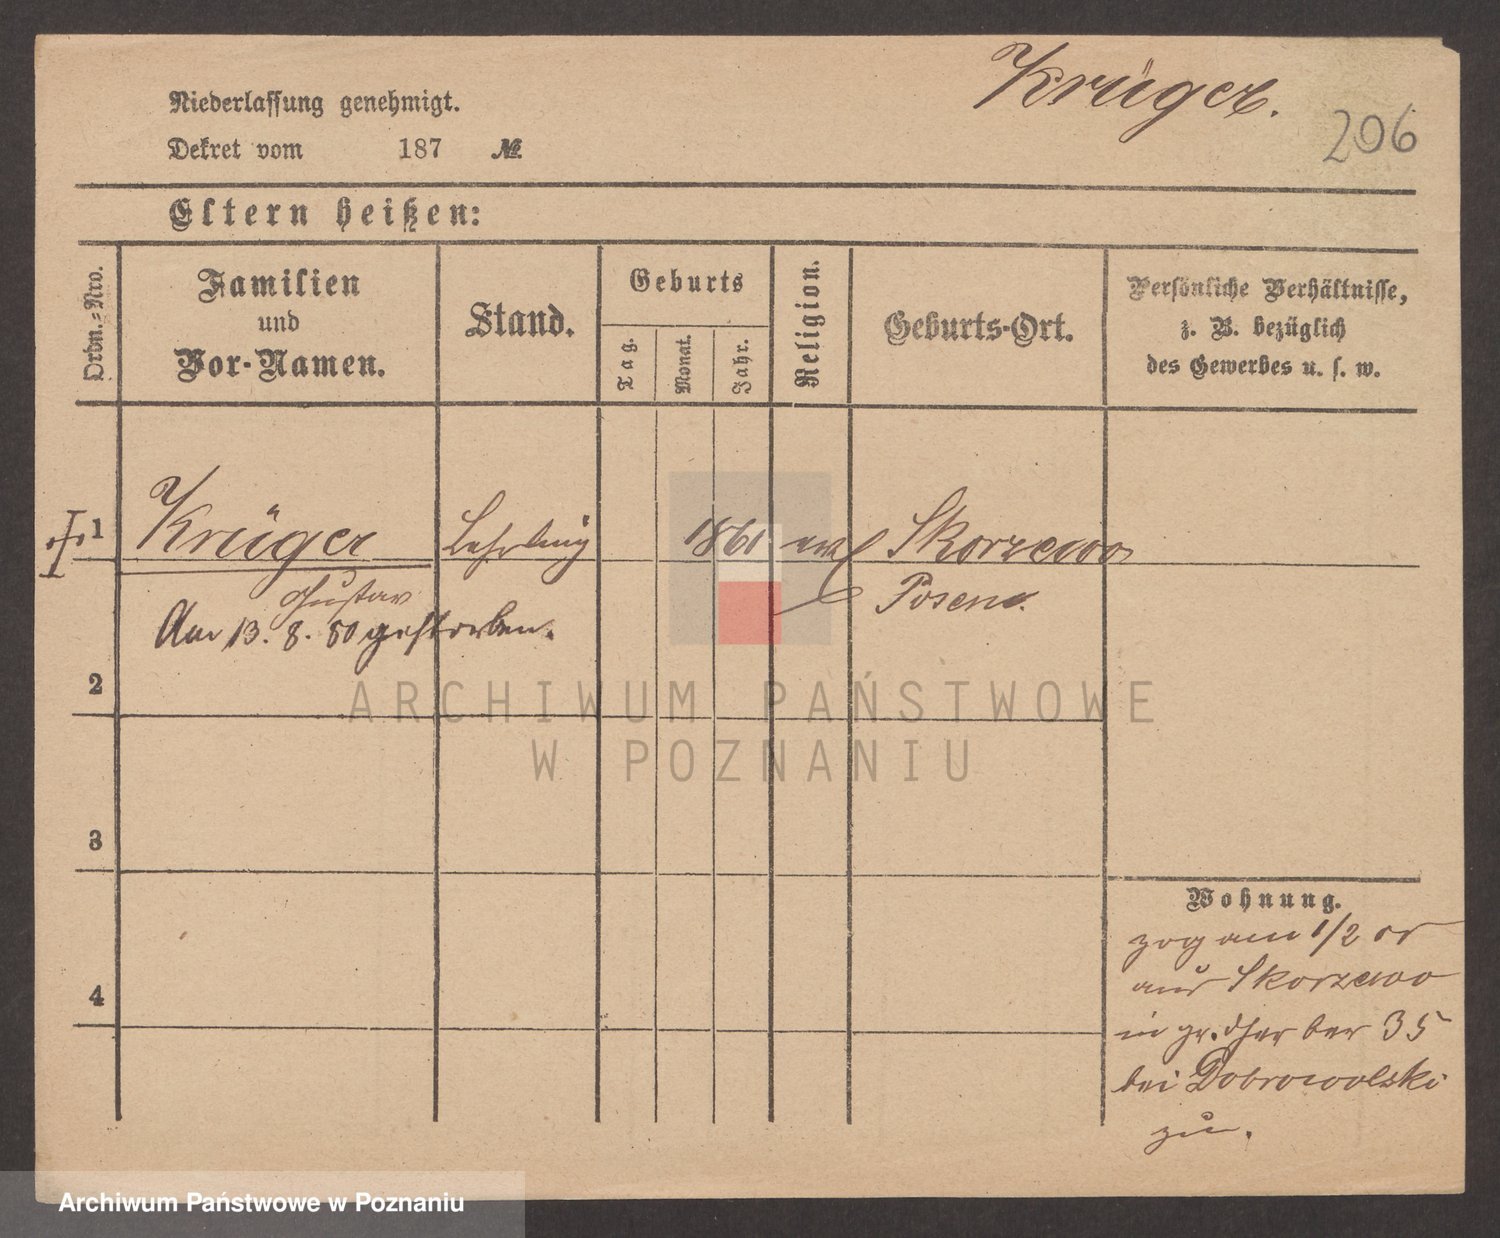 Krüger.
206
Niederlassung genehmigt.
Dekret vom 187 №
Eltern heißen:
Ordn.-Nro.
Familien
und
Vor-Namen.
Stand.
Geburts
Tag.
Monat.
Jahr.
Religion.
Geburts-Ort.
Persönliche Verhältnisse,
z. B. bezüglich
des Gewerbes u. s. w.
1 Krüger Lehrling 1861 Skorzewo
Gustav Posen
Am 13. 8. 80 gestorben.
2
3
4
Wohnung.
zog am 1/2
aus Skorzewo
in 35
bei Dobrowolski
zu.
ARCHIWUM PAŃSTWOWE
W POZNANIU
Archiwum Państwowe w Poznaniu